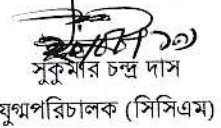 সুকুমার চন্দ্র দাস
যুগ্মপরিচালক (সিসিএম)